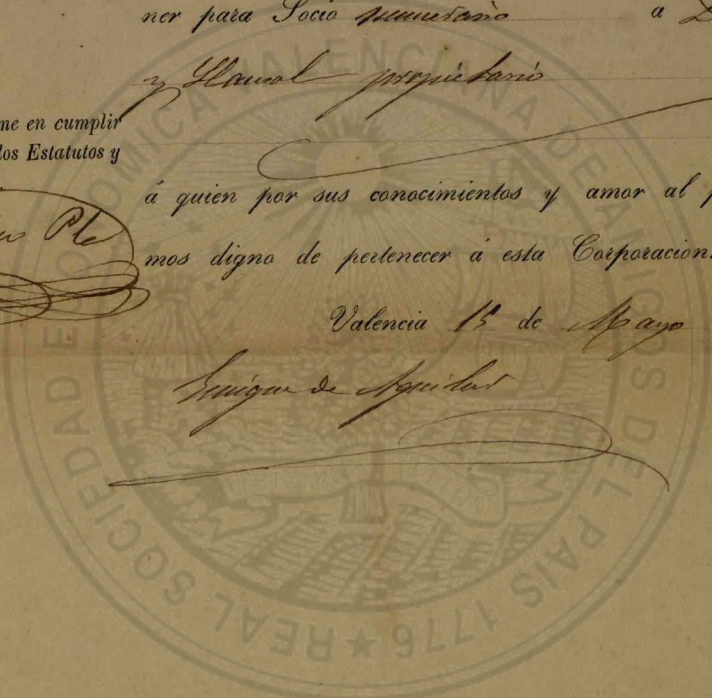 ner para Socio numerario a D
y Llansol propietario
me en cumplir
los Estatutos y
á quien por sus conocimientos y amor al p
mos digno de pertenecer á esta Corporacion.
Pla
Valencia 15 de Mayo
Enrique de Aguilar
REAL SOCIEDAD ECONOMICA VALENCIANA DE AMIGOS DEL PAIS 1776